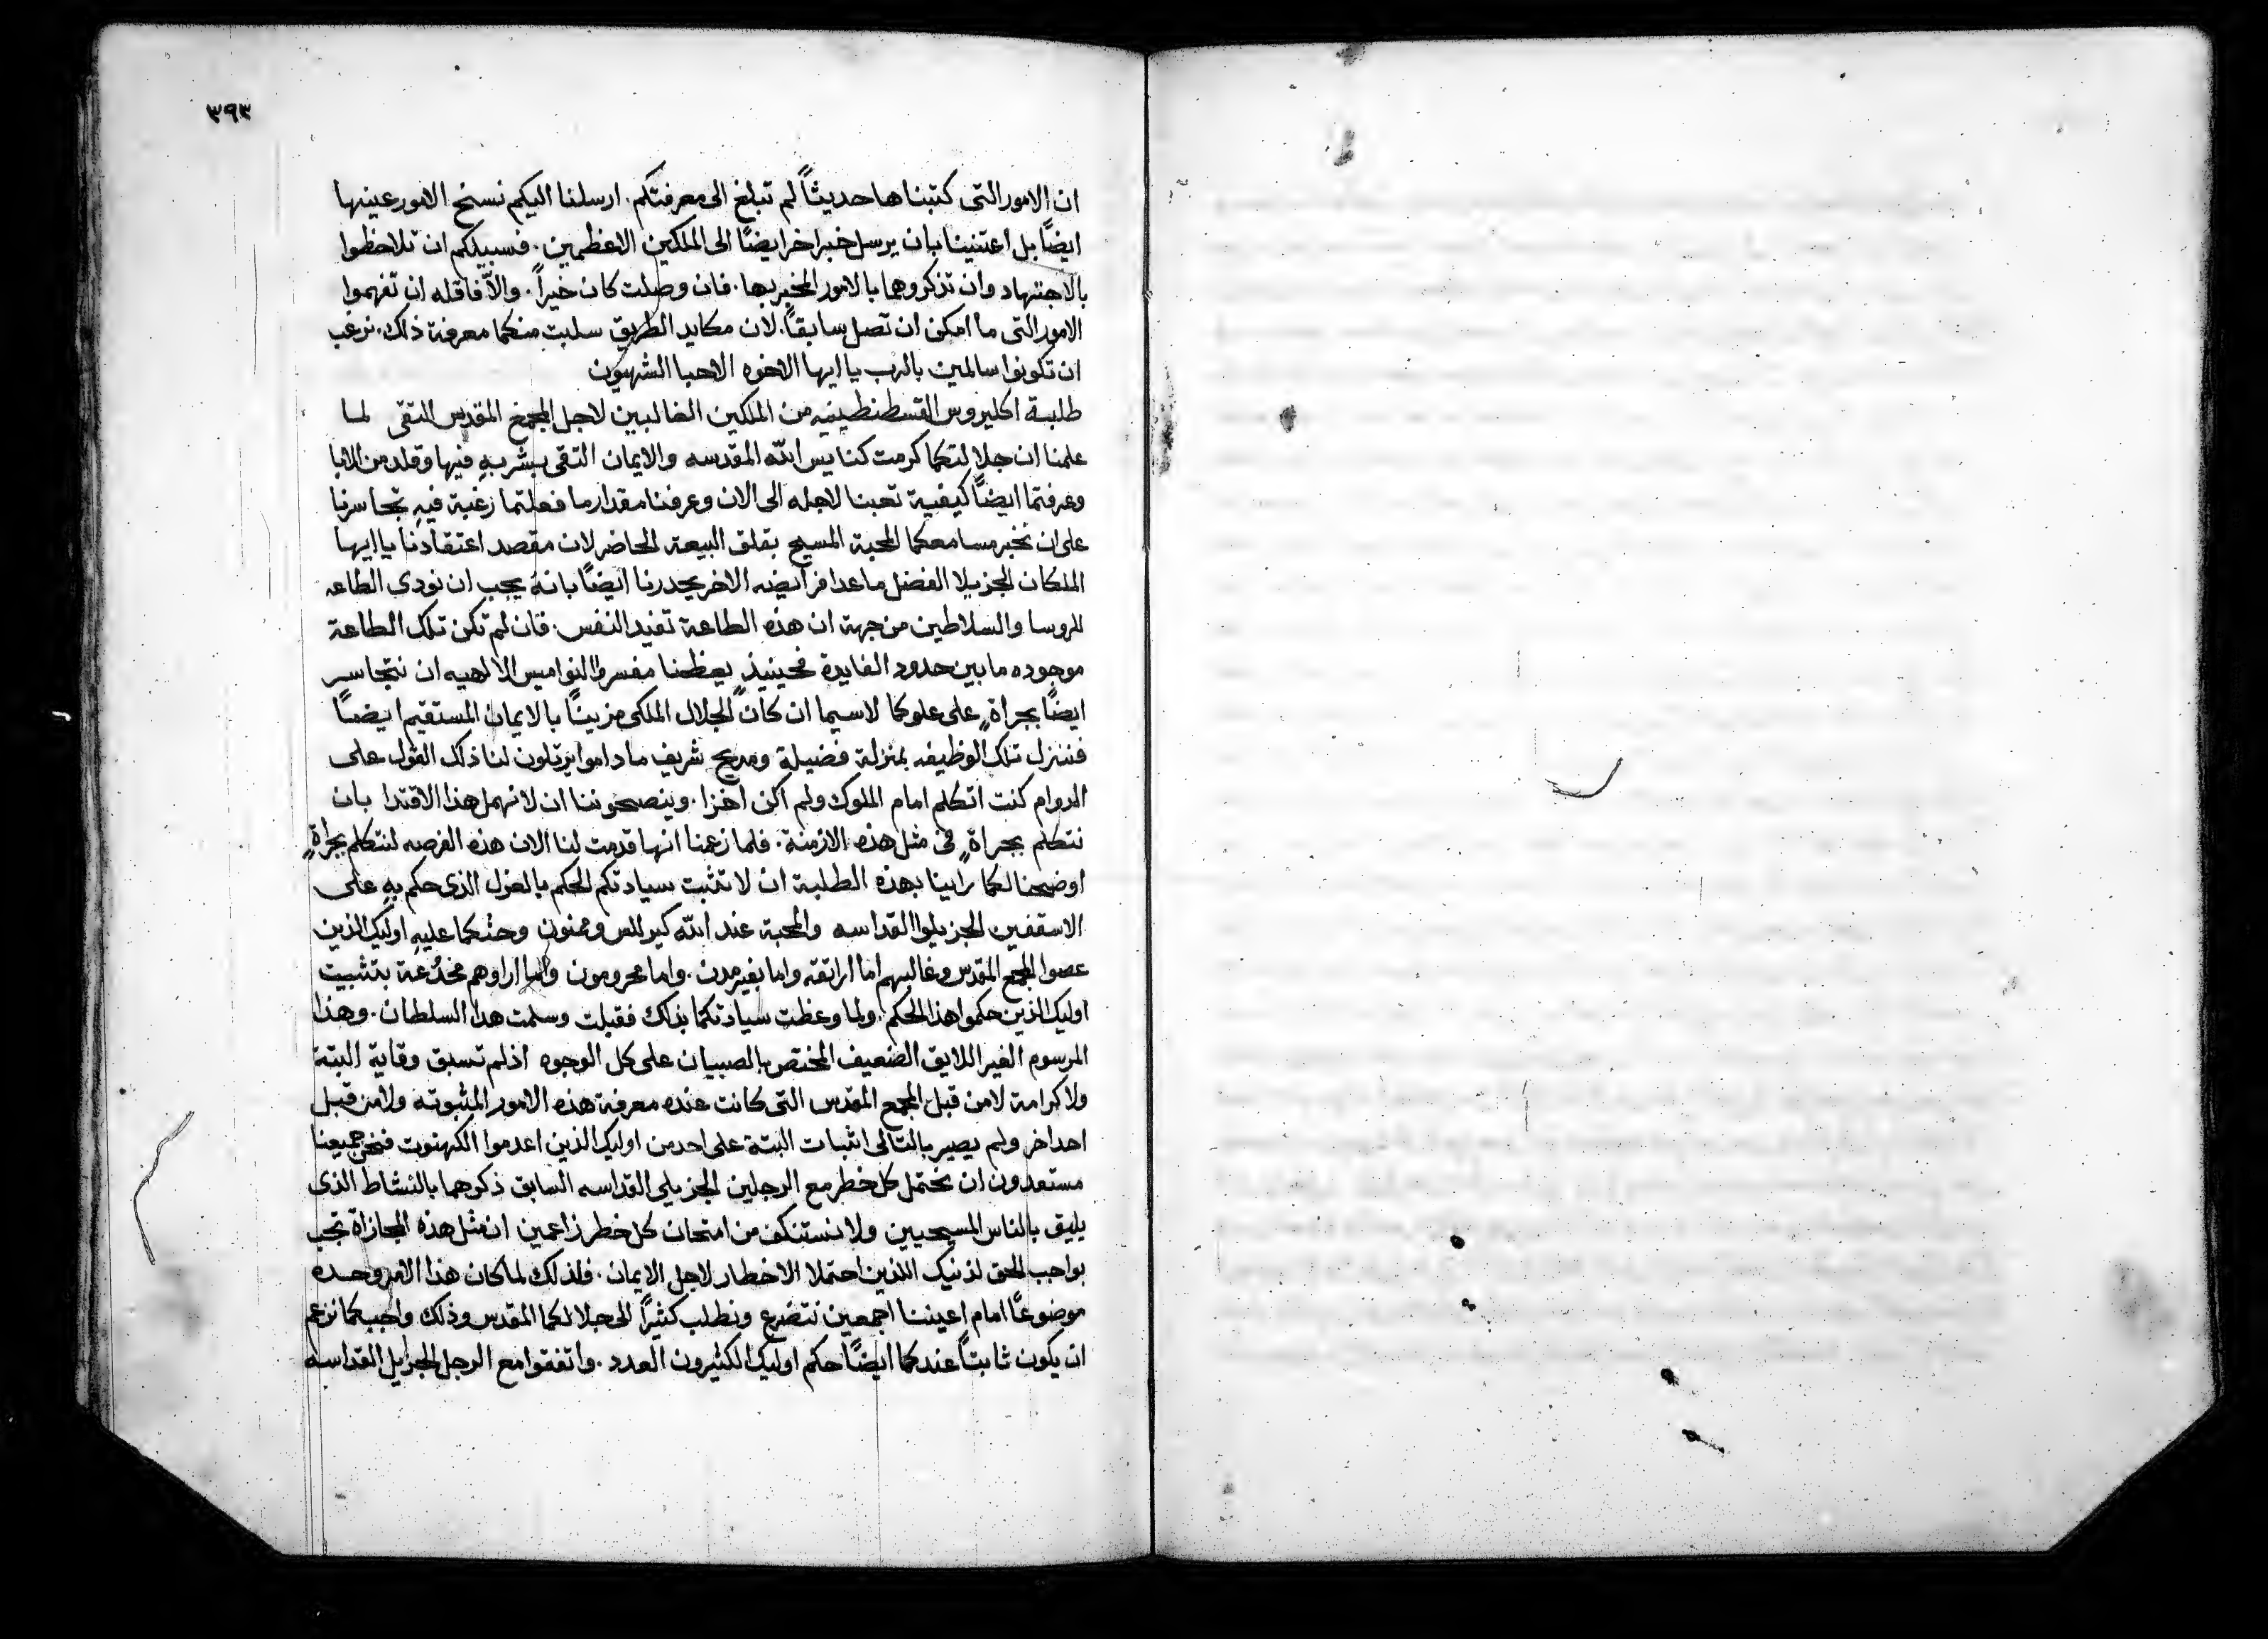 ٣٩٣
ان الامور التى كتبناها حديثاً لم تبلغ الى معرفتكم. ارسلنا اليكم نسخ الامور عينها
ايضاً بل اعتنينا بان يرسل خبر اخر ايضاً الى الملكين الاعظمين. فسبيلكم ان تلاحظوا
بالاجتهاد وان تذكروهما بالامور المخبر بها. فان وصلت كان خيراً. والاّ فاقله ان تفهموا
الامور التى ما امكن ان تصل سابقاً. لان مكايد الطريق سلبت منكما معرفة ذلك. نرغب
ان تكونوا سالمين بالرب يا ايها الاخوه الاحبا الشهيون
طلبة اكليروس القسطنطينيه من الملكين الغالبين لاجل المجمع المقدس التقى لما
علمنا ان جلالتكما كرمت كنايس الله المقدسه والايمان التقى بشر به فيها وقلد من الابا
وعرفتما ايضاً كيفية تعبنا لاجله الى الان وعرفنا مقدار ما فعلتما رغبة فيه تجاسرنا
على ان نخبر مسامعكما المحبة المسيح بقلق البيعة الحاضر لان مقصد اعتقادنا يا ايها
الملكان الجزيلا الفضل ما عدا فرايضه الاخر يحدرنا ايضاً بانه يجب ان نودى الطاعه
للروسا والسلاطين من جهة ان هذه الطاعة تفيد النفس. فان لم تكن تلك الطاعة
موجوده ما بين حدود الفايدة فحينيذٍ يعظنا مفسروا النواميس الالهيه ان نتجاسر
ايضاً بجراةٍ على علوكما لاسيما ان كان الجلال الملكى مزيناً بالايمان المستقيم ايضاً
فننزل تلك الوظيفه بمنزلة فضيلة ومديح شريف ما داموا يرتلون لنا ذلك القول على
الدوام كنت اتكلم امام الملوك ولم اكن اخزا. وينصحوننا ان لا نهمل هذا الاقتدا بان
نتكلم بجراةٍ فى مثل هذه الازمنة. فلما زعمنا انها قدمت لنا الان هذه الفرصه لنتكلم بجراةٍ
اوضحنا لكما راينا بهذه الطلبة ان لا تثبت سيادتكم الحكم بالعزل الذى حكم به على
الاسقفين الجزيلوا القداسه والمحبة عند الله كيرللس وممنون وحثكما عليه اوليك الذين
عصوا المجمع المقدس وغالبهم اما اراتقه واما بغير مدن. واما محرومون واما اراوهم مخدعة بتثبيت
اوليك الذين حكموا هذا الحكم. ولما وعظت سيادتكما بذلك فقبلت وسلمت هذا السلطان. وهذا
المرسوم الغير اللايق الضعيف المختص بالصبيان على كل الوجوه اذ لم تسبق وقاية البتة
ولا كرامة لا من قبل المجمع المقدس التى كانت عنده معرفة هذه الامور المثبوته ولا من قبل
احد اخر ولم يصير بالتالى اثبات البتة على احد من اوليك الذين اعدموا الكهنوت فنحن جميعنا
مستعدون ان نحتمل كل خطر مع الرجلين الجزيلى القداسه السابق ذكرهما بالنشاط الذى
يليق بالناس المسيحيين ولا نستنكف من امتحان كل خطر زاعمين ان مثل هذه المجازاة تجب
بواجب الحق لذينك اللذين احتملا الاخطار لاجل الايمان. فلذلك لما كان هذا الامر وحده
موضوعاً امام اعيننا اجمعين نتضرع ونطلب كثيراً الى جلالتكما المقدس وذلك واجب كما نزعم
ان يكون ثابتاً عندكما ايضاً حكم اوليك الكثيرون العدد. واتفقوا مع الرجل الجزيل القداسه